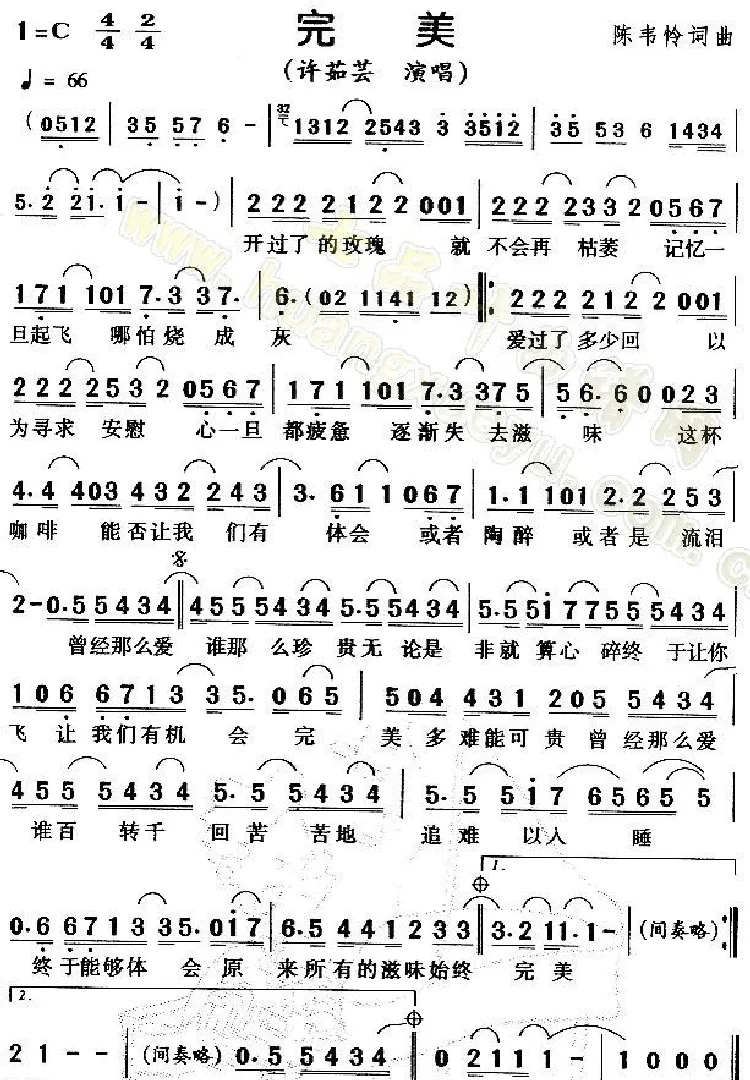 1=C 4/4 2/4 完 美 陈韦怜词曲
♩= 66 (许茹芸 演唱)
(0512 | 35 57 6 - | 1312 2543 3 3512 | 35 53 6 1434 |
5. 2 21. 1 - | 1 -) | 222 2122 2 001 | 222 2332 0567 |
开过了的玫瑰 就 不会再 枯萎 记忆一
171 101 7. 3 37. | 6. (02 1141 12) |: 222 2122 2 001 |
旦起飞 哪怕烧 成 灰 爱过了多少回 以
222 2532 0567 | 171 101 7. 3 375 | 56. 6 0023 |
为寻求 安慰 心一旦 都疲惫 逐渐失 去滋 味 这杯
4. 4 403 432 243 | 3. 61 1067 | 1. 1 101 2. 2 253 |
咖啡 能否让我 们有 体会 或者 陶醉 或者是 流泪
2 - 0. 55434 || 455 5434 5. 55434 | 5. 551 7755 5434 |
曾经那么爱 谁那 么珍 贵无 论是 非就 算心 碎终 于让你
106 6713 35. 065 | 504 431 205 5434 |
飞 让 我们有机 会 完 美 多 难能可 贵 曾 经那么爱
455 5434 5. 5 5434 | 5. 5 517 6565 5 |
谁百 转千 回苦 苦地 追 难 以入 睡
1.
0. 6 6713 35. 017 | 6. 5 441 233 || 3. 2 11. 1 - | (间奏略) :|
终于能够体 会 原 来所有的滋味始终 完 美
2.
2 1 - - | (间奏略) 0. 5 5434 || 0 2111 - | 1000 ||